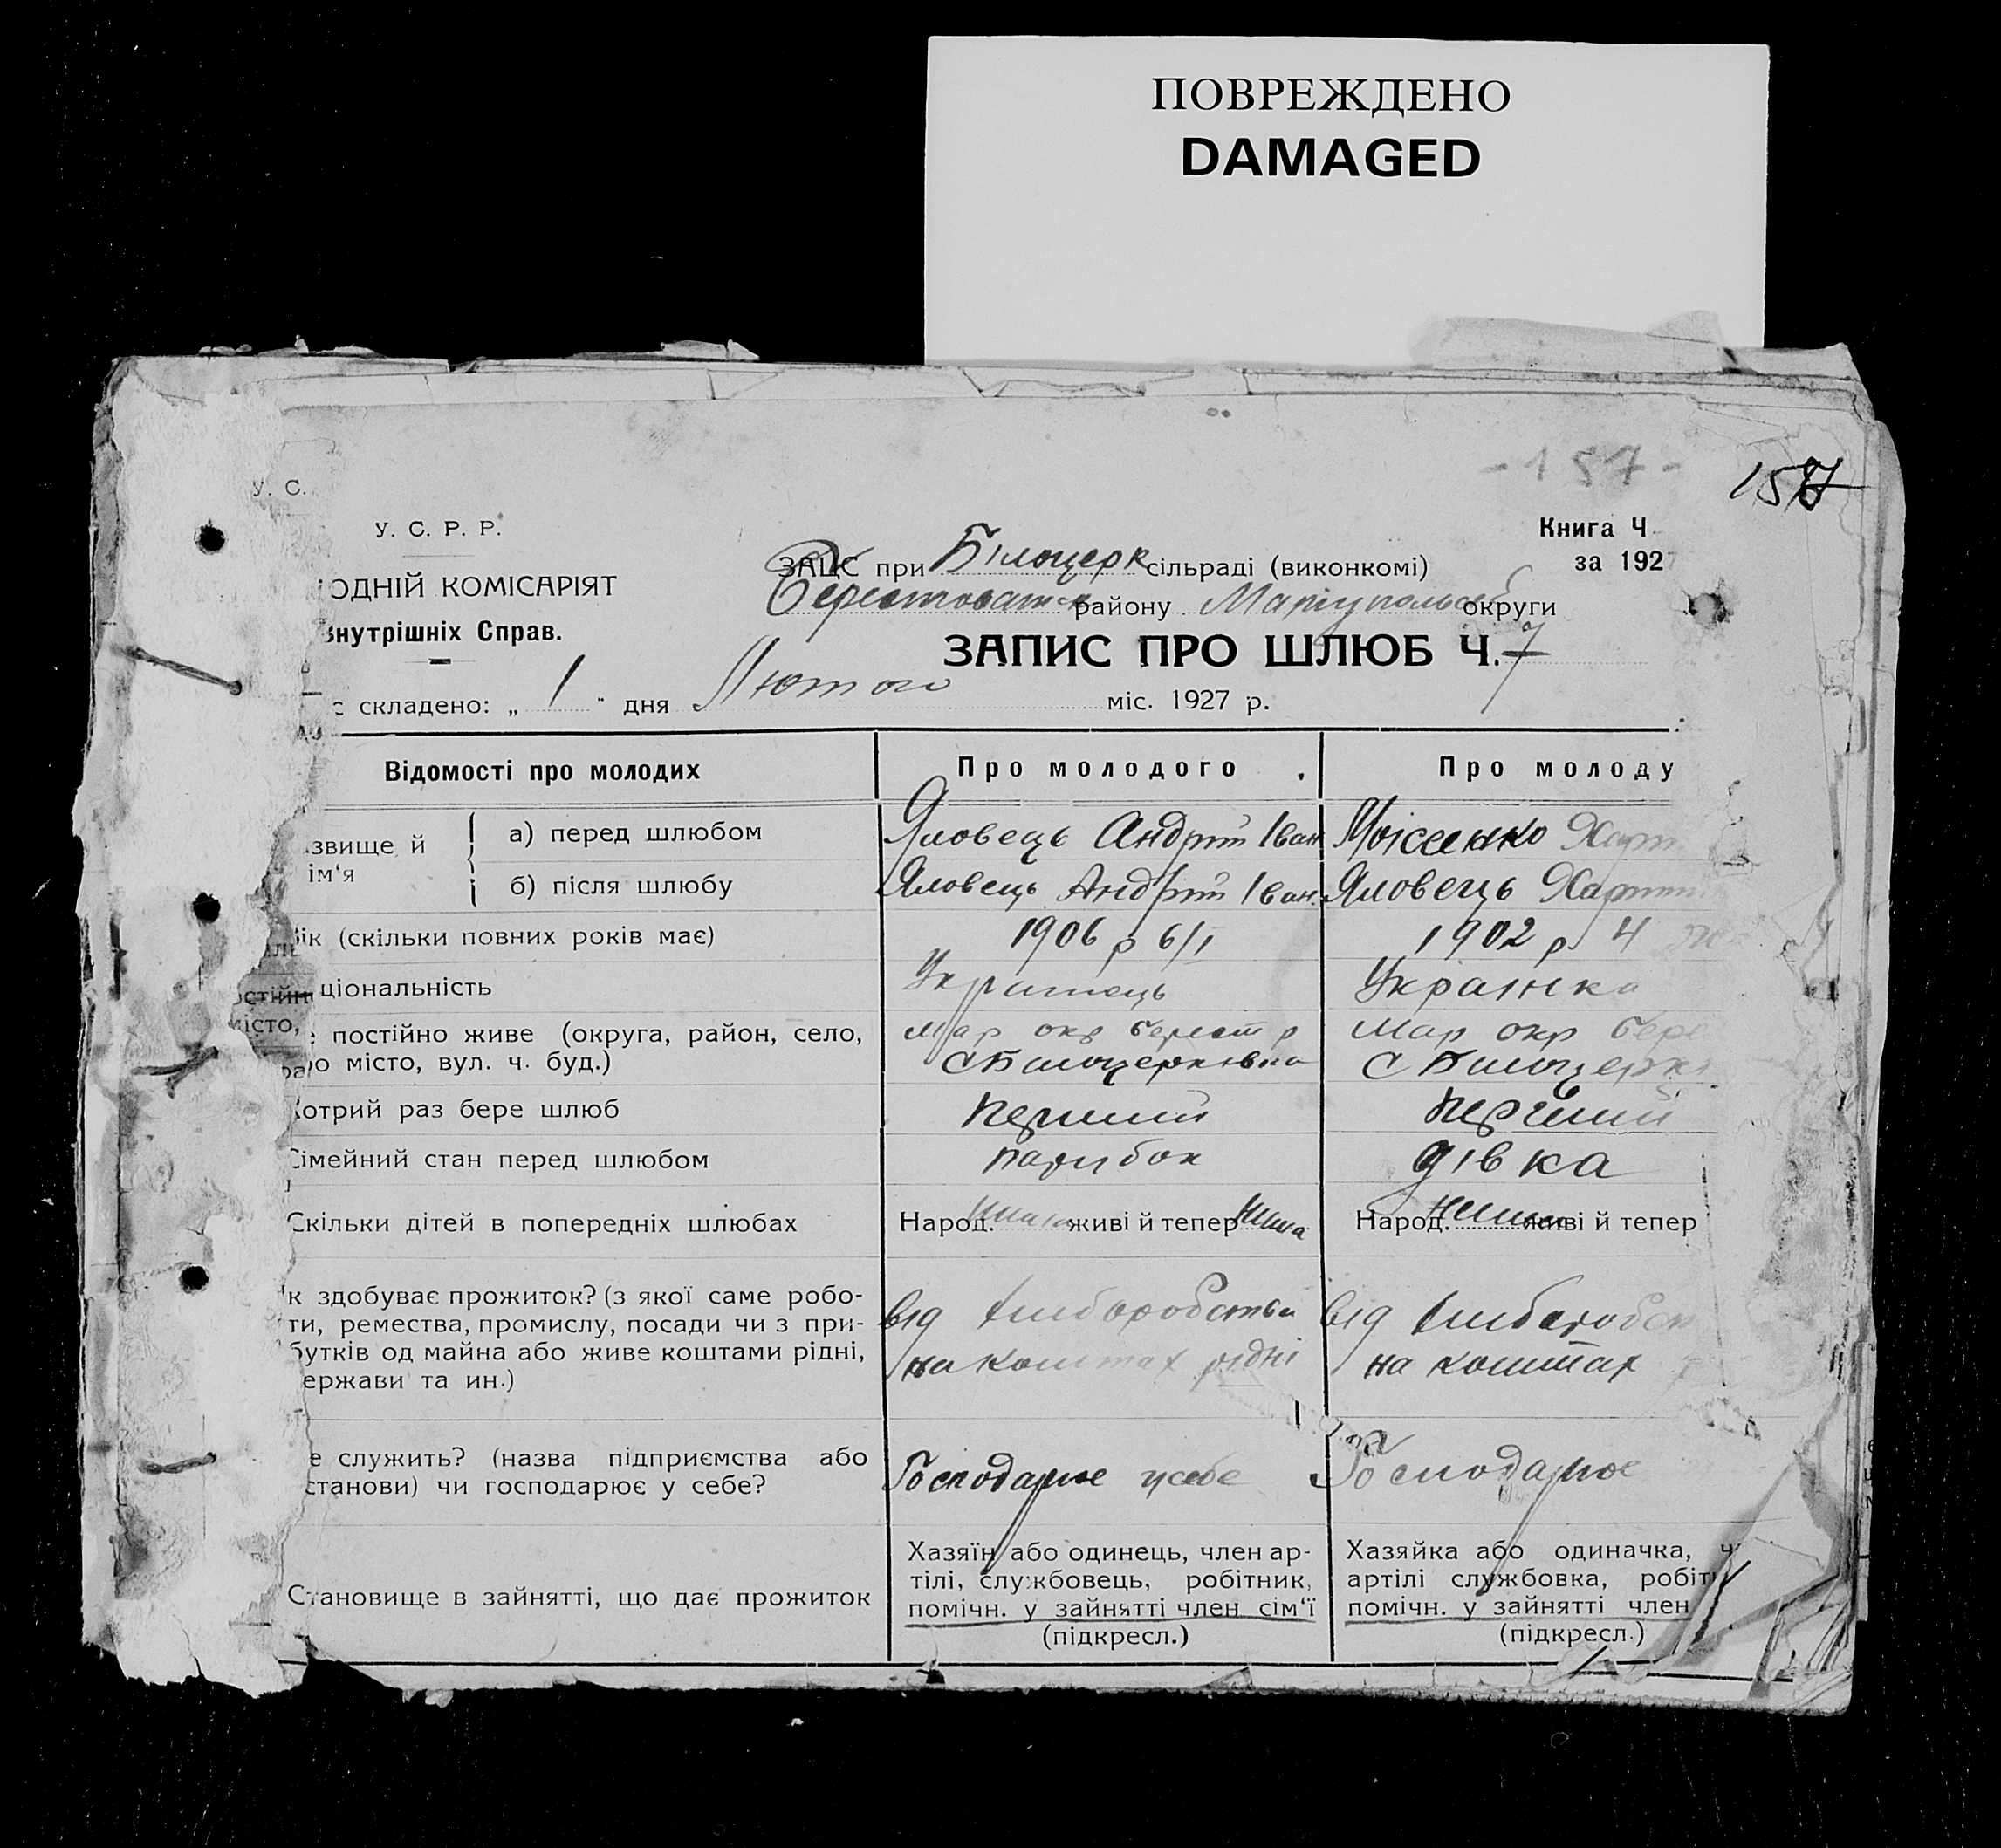 ПОВРЕЖДЕНО
DAMAGED
-157-
У. С.
У. С. Р. Р.
Книга Ч
ЗАЦС при Білоцерк сільраді (виконкомі)
за 1927
ОДНІЙ КОМІСАРІЯТ
района Маріупольськ округи
Внутрішніх Справ.
ЗАПИС ПРО ШЛЮБ Ч. 7
с складено: „ 1 " дня Лютого міс. 1927 р.
Відомості про молодих
Про молодого
Про молоду
азвище й ім‘я
а) перед шлюбом
Яловець Андрій Іван
Моісеенко
б) після шлюбу
Яловець Андрій Іван.
Яловець
ік (скільки повних років має)
1906 р 6/I
1902 р 4
ціональність
Українець
Українка
е постійно живе (округа, район, село,
о місто, вул. ч. буд.)
Мар окр берест р
с Білоцерківка
Мар окр бере
с Білоцеркі
Котрий раз бере шлюб
Перший
Перший
Сімейний стан перед шлюбом
парубок
дівка
Скільки дітей в попередніх шлюбах
Народ. нима живі й тепер нима
Народ. нима живі й тепер
к здобуває прожиток? (з якої саме робо-
ти, ремества, промислу, посади чи з при-
бутків од майна або живе коштами рідні,
ержави та ин.)
від хлиборобства
на коштах рідні
від хлиборобст
на коштах
е служить? (назва підприємства або
станови) чи господарює у себе?
Господарює усебе
Господарює
Становище в зайнятті, що дає прожиток
Хазяїн або одинець, член ар-
тілі, службовець, робітник,
помічн. у зайнятті член сім‘ї
(підкресл.)
Хазяйка або одиначка, ч
артілі службовка, робітн
помічн. у зайнятті член
(підкресл.)